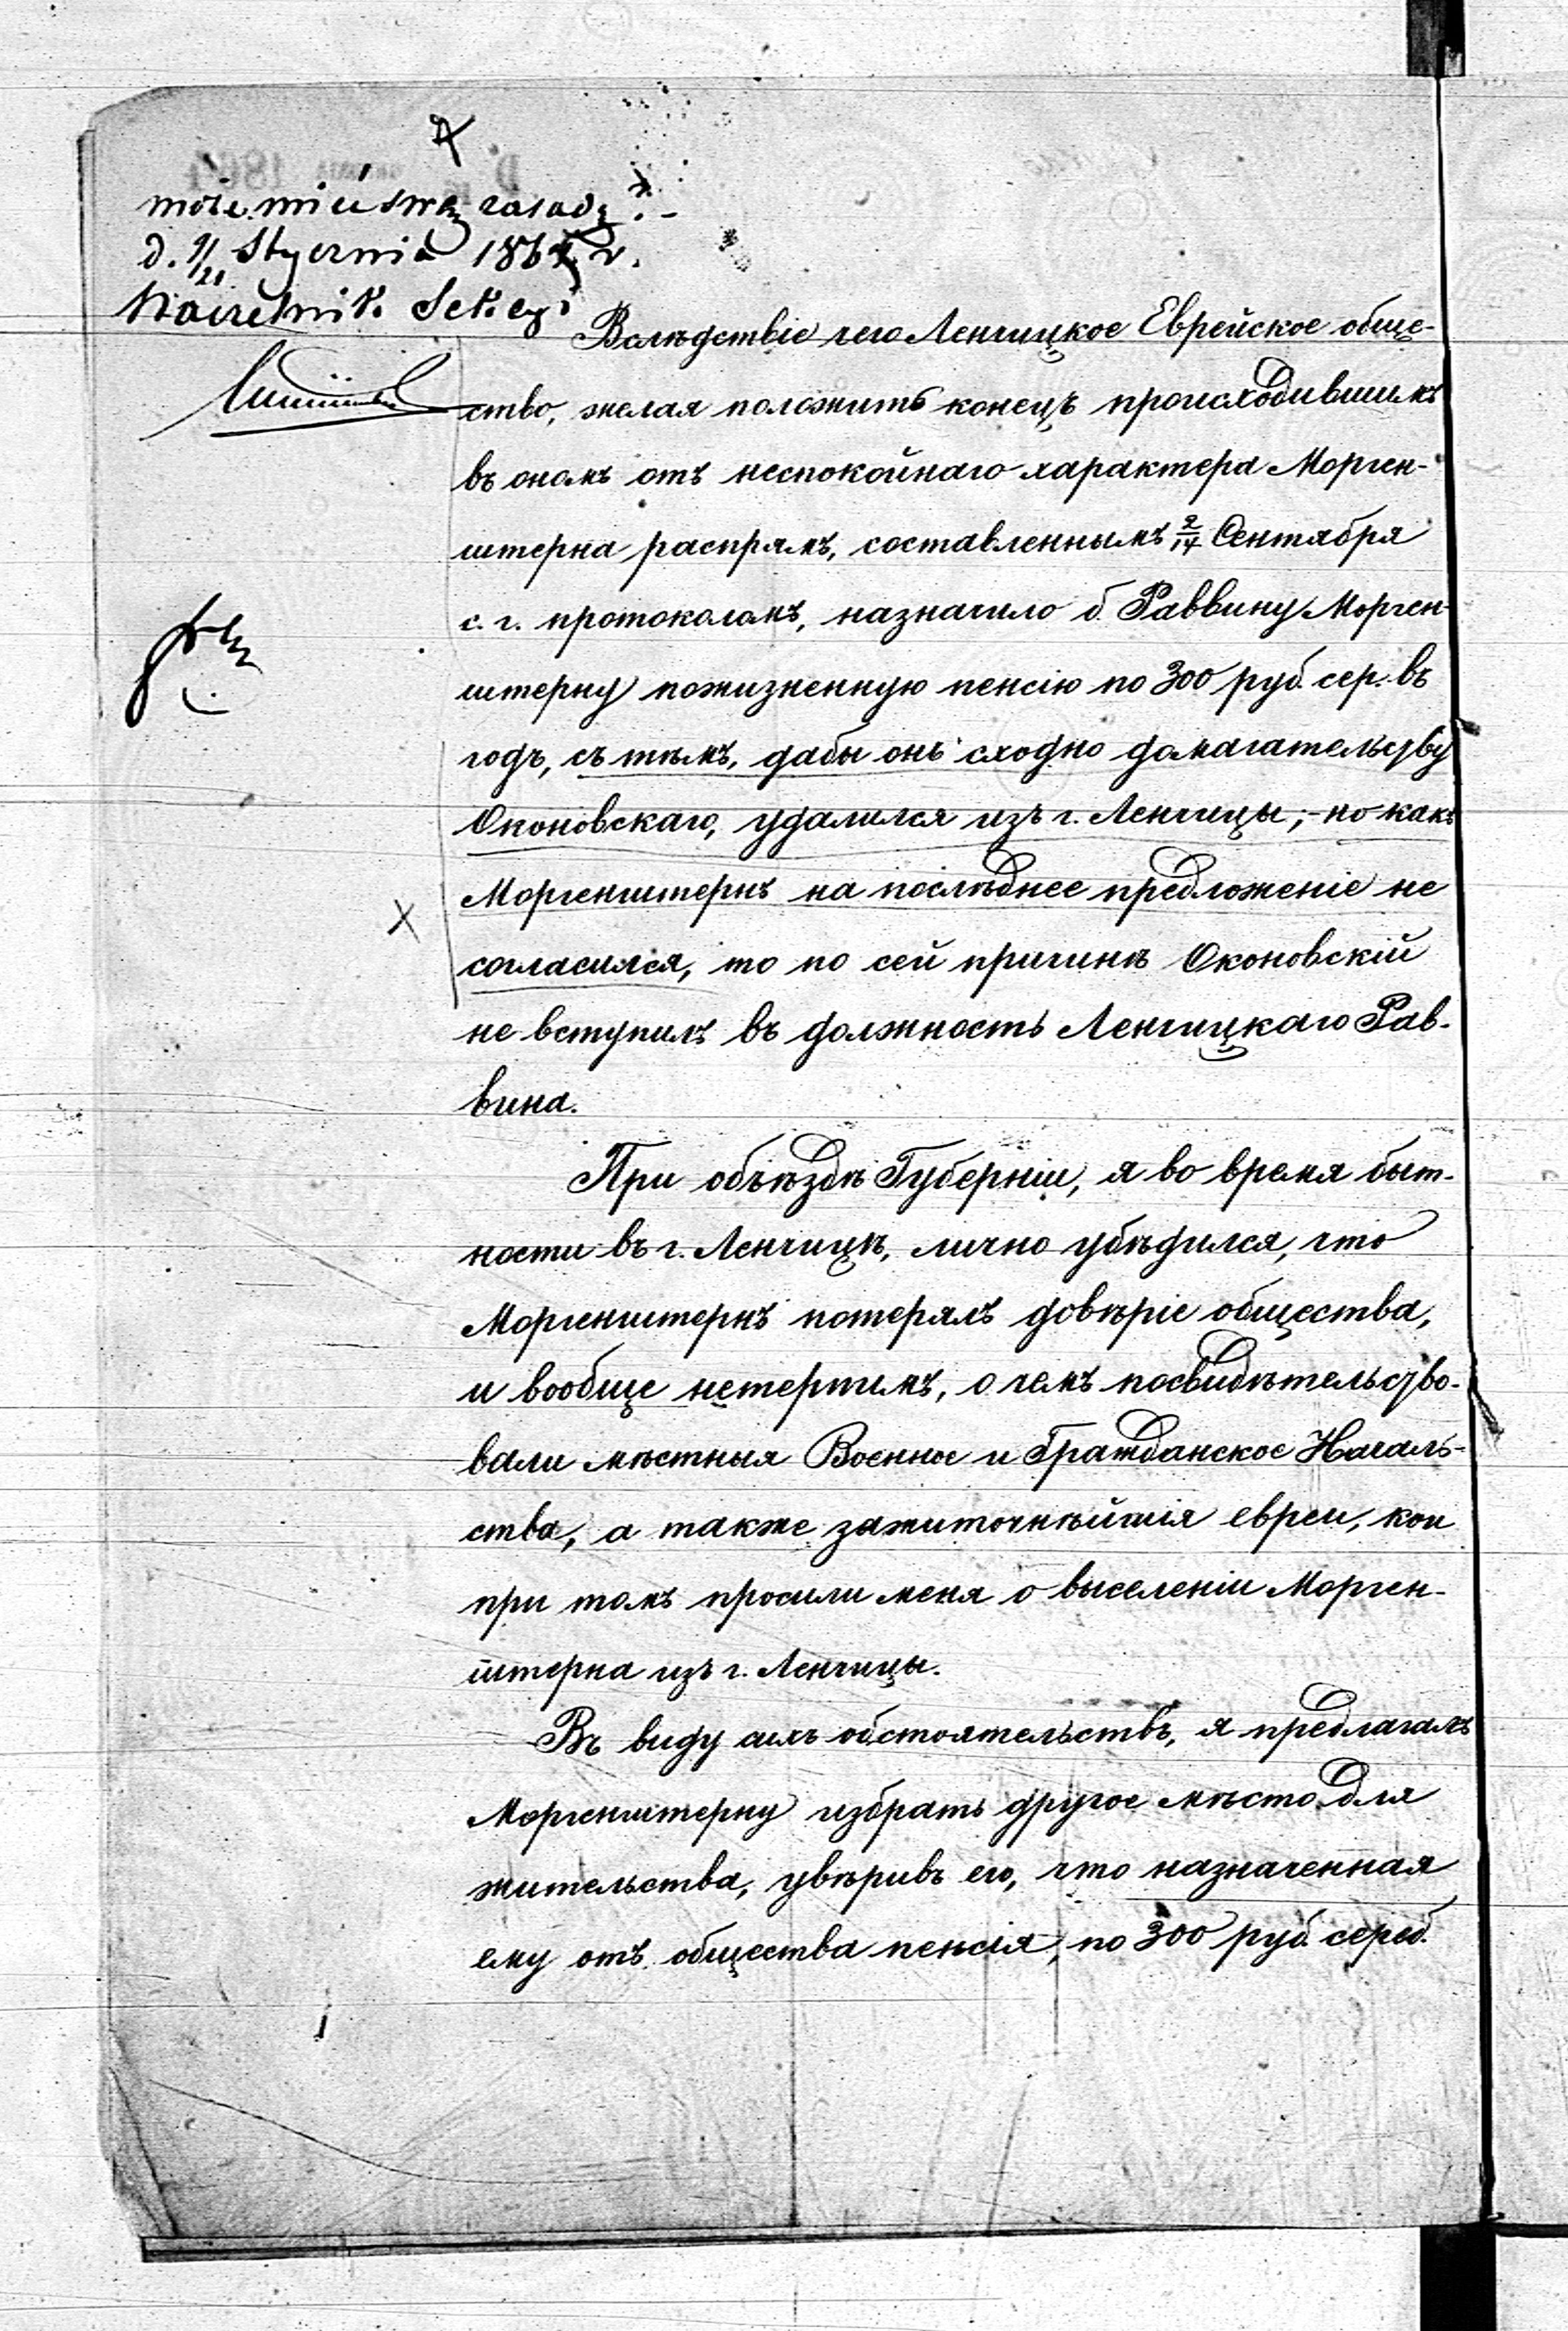 może mieć swą zasadę.–
d. 9/21 Stycznia 1864 r.
Naczelnik Sekcyi
Вслѣдствіе чего Ленчицкое Еврейское обще-
ство, желая положить конецъ происходившимъ
въ ономъ отъ неспокойнаго характера Морген-
штерна распрямъ, составленнымъ 2/14 Сентября
с. г. протоколомъ, назначило б. Раввину Морген-
штерну пожизненную пенсію по 300 руб. сер. въ
годъ, съ тѣмъ, дабы онъ сходно домагательству
Оконовскаго, удалился изъ г. Ленчицы; – но какъ
Моргенштернъ на послѣднее предложеніе не
согласился, то по сей причинѣ Оконовскій
не вступилъ въ должность Ленчицкаго Рав-
вина.
При объѣздѣ Губерніи, я во время быт-
ности въ г. Ленчицѣ, лично убѣдился, что
Моргенштернъ потерялъ довѣріе общества,
и вообще нетерпимъ, о чемъ посвидѣтельство-
вали мѣстныя Военное и Гражданское Началь-
ства, а также зажиточнѣйшія евреи, кои
при томъ просили меня о выселеніи Морген-
штерна изъ г. Ленчицы.
Въ виду сихъ обстоятельствъ, я предлагалъ
Моргенштерну избрать другое мѣсто для
жительства, увѣривъ его, что назначенная
ему отъ общества пенсія, по 300 руб. сереб.